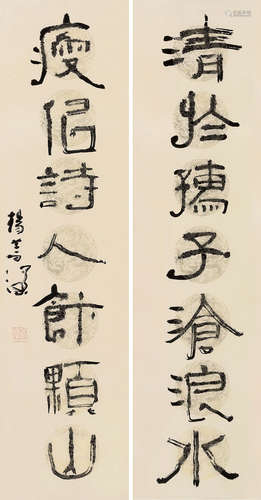 清於孺子滄浪水
瘦佀詩人飯顆山
楊善深